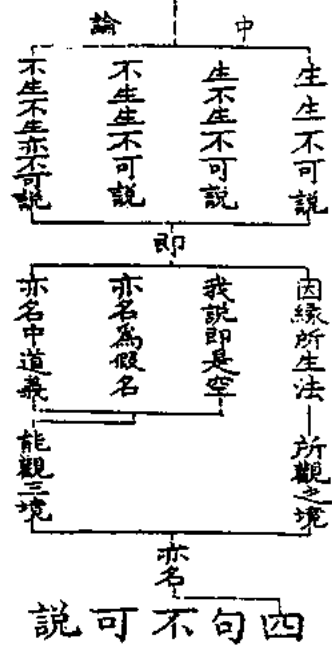 中論
生生不可説
生不生不可説
不生生不可説
不生不生亦不可説
即
因縁所生法
所觀之境
我説即是空
亦名為假名
亦名中道義
能觀三境
亦名
四句不可説